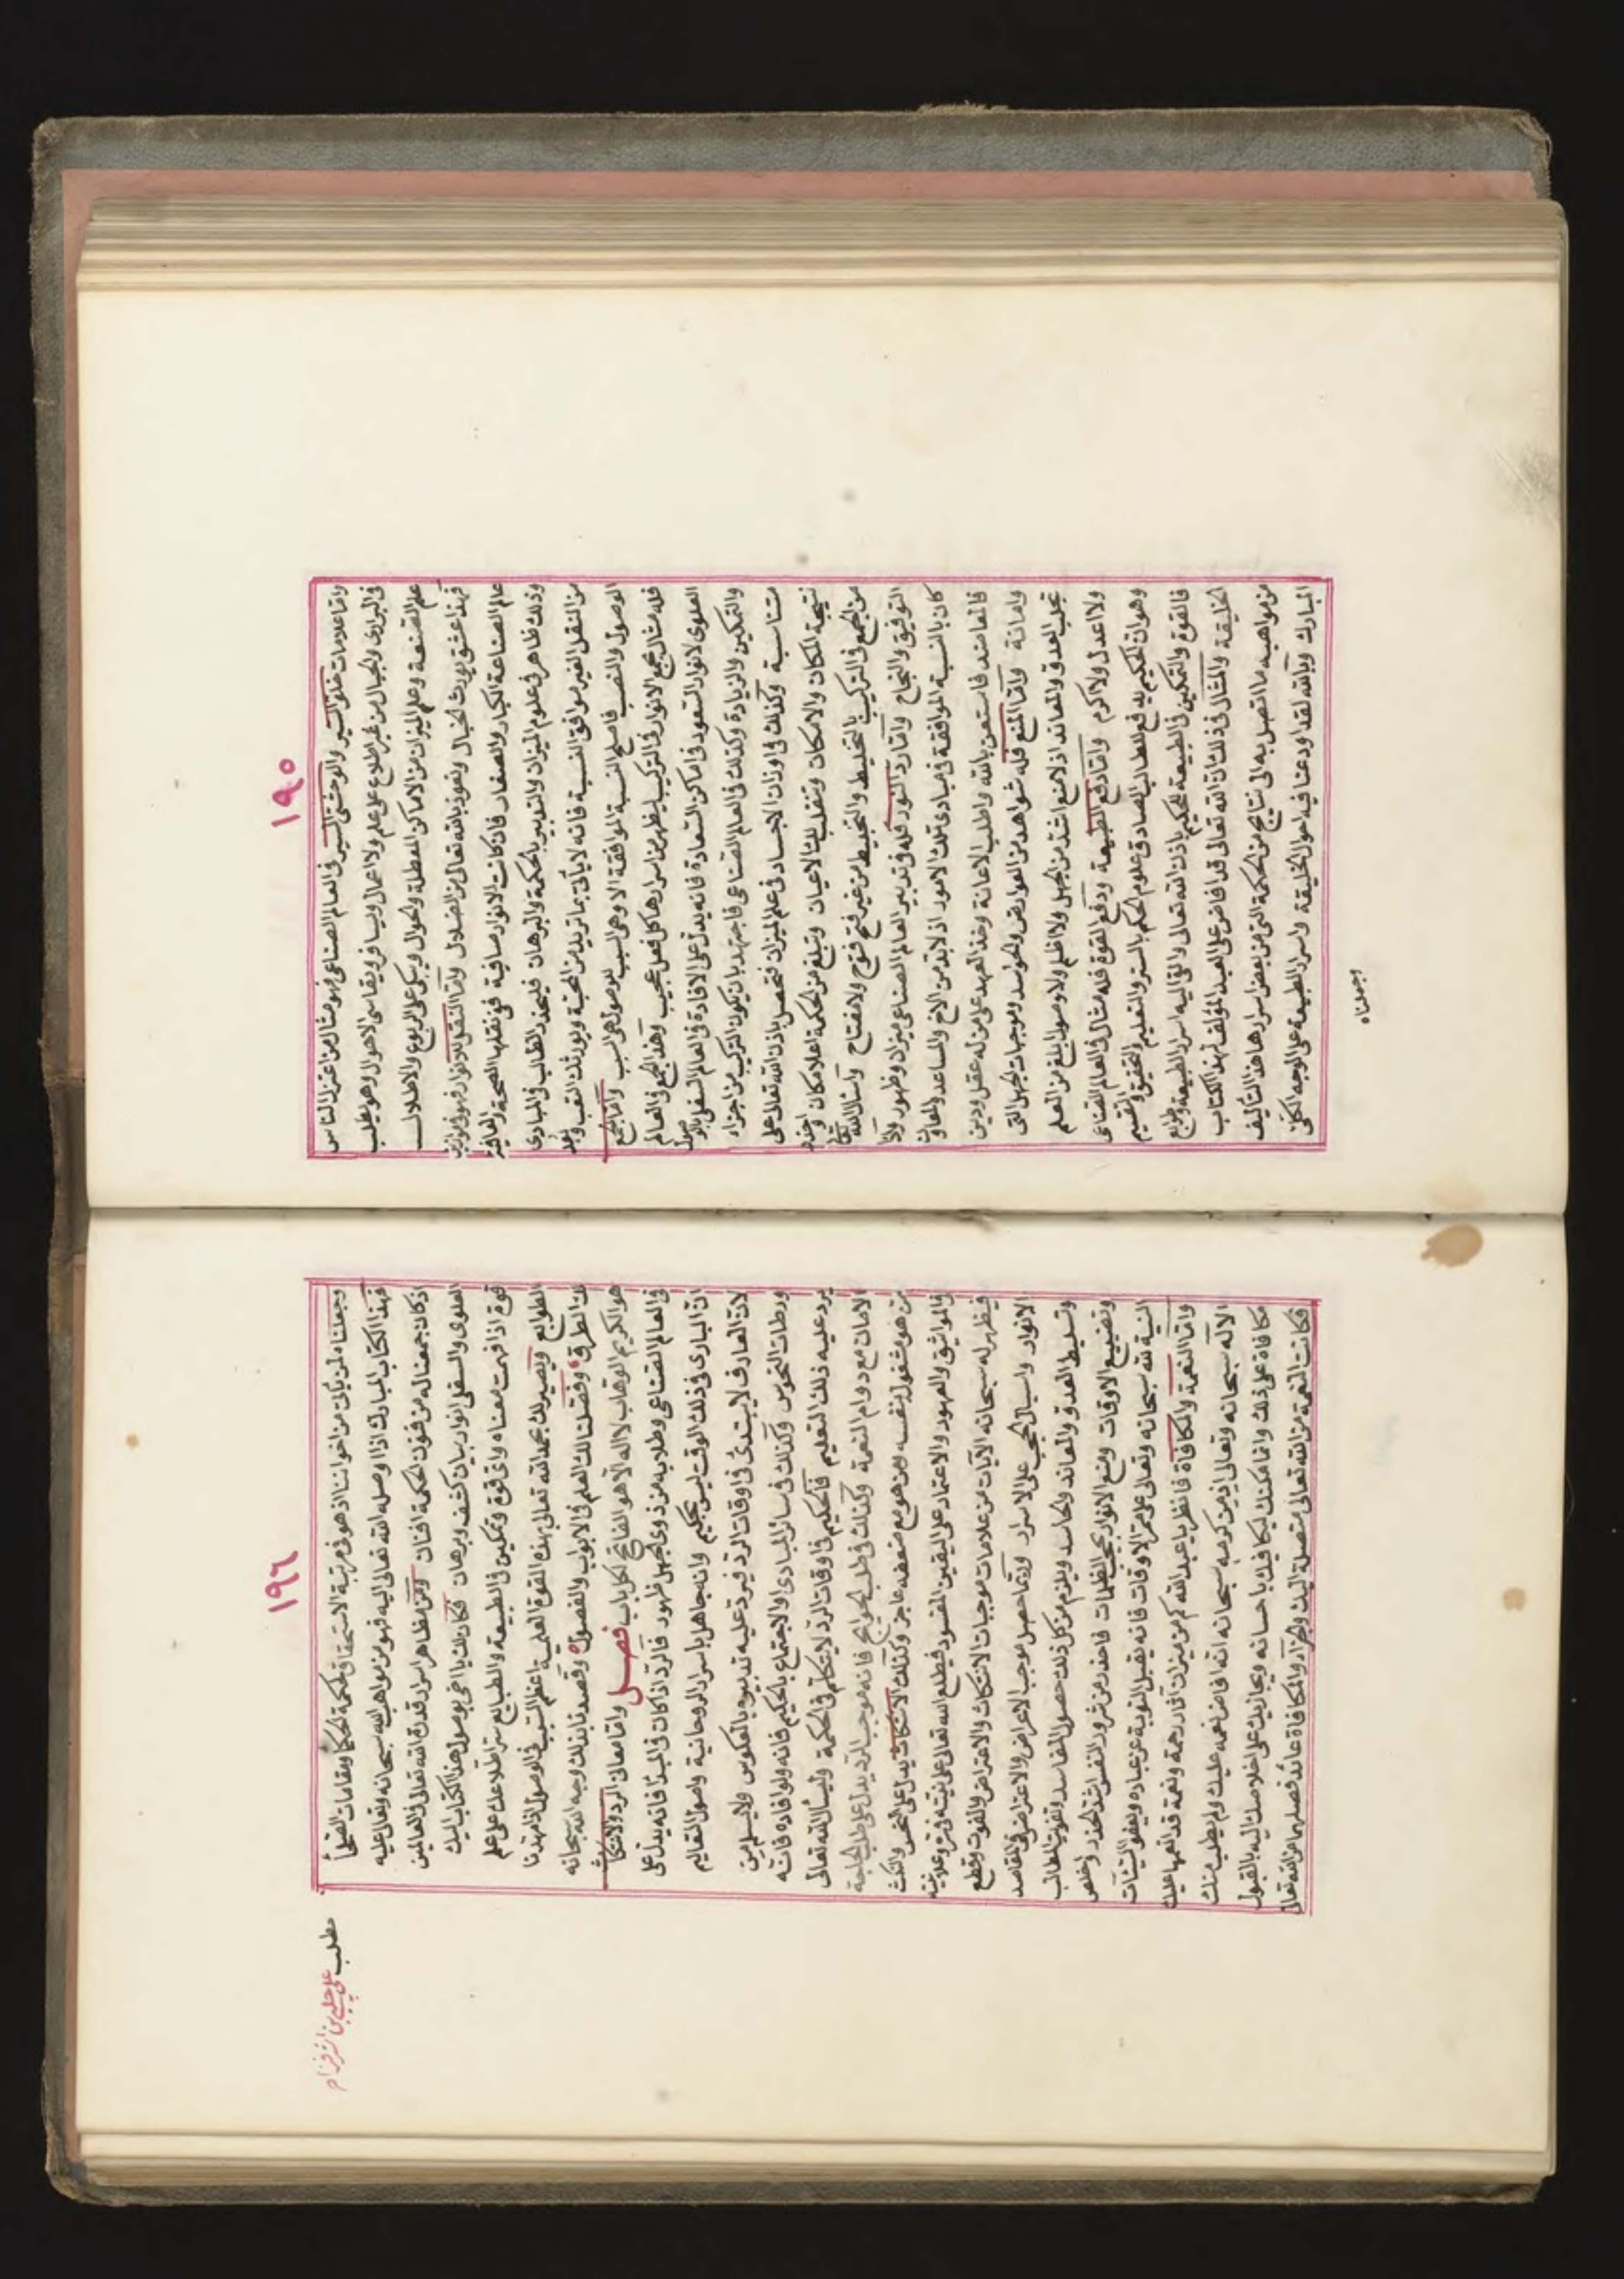 ١٩٥
واما علامات خلو السير والوحشي السير في العالم الصناعي فهو مثال من اعتزل الناس
في البراري والجبال من غير اطلاع على علم ولا اعمال ويسافر ويقاسي الاهوال وهو يطلب
علم الصنعة وعلم الميزان من الاماكن المعطلة والحوال ويبكي على الربوع والاطلال
فهذا عشق يورث الخبال ونعوذ بالله تعالى من الضلال واما النقل للانوار فهو في موازين
عالم الصناعة الكبار والصغار فان كانت الانوار صافية ففي نقلها الصحة والعافية
وذلك ظاهر في علوم الميزان والتدبير بالحكمة والبرهان فليحذر الطالب في المبادى
من النقل الغير موافق النسبة فانه لا ياتى بما تريد من المحبة ويورثك التعب و
الوصول والنصب فاصلح النسبة الموافقة الا وهى السبب للوصول هي السبب واما الجمع
فله مثال بجمع الانوار في التركيب ليظهر من اسرارها كل فعل عجيب وهذا الجمع في العالم
العلوى لانوار السعود في اماكن السعادة فانه يدل على الافادة في العالم السفلى بالوصول
والتمكين والزيادة وكذلك في العالم الصناعي فاجتهد بان يكون التركيب من اجزاء
متناسبة وكذلك في اوزان الاجساد في علم الميزان فتحصل باذن الله تعالى على
نتيجة المكان والامكان وتنقلب لك الاعيان وتبلغ من الحكمة اعلا مكان
من الجمع في التركيب بالتخليط والتخبيط من غير فتح فتوح ولا مفتاح واسئل الله
التوفيق والنجاح واما رد النور فله في تدبير العالم الصناعي ميزان وظهور
كان بالنسبة الموافقة في مبادى تلك الامور اذ لا بد من الاخ والمساعد والمعاون
فالمعاضد فاستعن بالله واطلب الاعانة وخذ العهد على من له عقل ودين
وامانة واما المنع فله شواهد من العوارض والحواسد وموجبات الجهل التى
تجلب العدو والمعاند اذ لا منع اشد من الجهل ولا اظلم ولا وصول ابلغ من العلم
ولا اعدل ولا اكرم واما دفع الطبيعة ودفع القوة فله مثال في العالم الصناعى
وهو ان الحكيم يدفع للطالب الصادق علوم الحكم بالستر والتعليم والتحقيق والتقسيم
فالقوة والتمكين في الطبيعة للحكيم باذن الله تعالى والقى اليه اسرار الطبيعة
الخليقة والمثال في ذلك ان الله تعالى قد افاض على العبد المؤلف لهذا الكتاب
من مواهبه ما اتصل به الى نتايج من الحكمة التى من بعض اسرارها هذا التأليف
المبارك وبالله لقد اودعنا فيه اصول الخليقة واسرار الطبيعة على الوجه الكلى
وجعلناه
١٩٦
وجعلناه لمن يكون من اخواننا اذ هو في مرتبة الاستحقاق لحكمة الحكما ومقامات الصلحا
فهذا الكتاب المبارك اذا اوصله الله تعالى اليه فهو من مواهب الله سبحانه وتعالى عليه
اذ كان جمعنا له من فنون الحكمة افنان ومن مظاهر اسرار قدرة الله تعالى في العالمين
العلوى والسفلى انوار بيان كشف وبرهان فكان بك يا اخي بوصول هذا الكتاب اليك
قوة اذا فهمت معناه واى قوة وتمكين في الطبيعة والطبايع ستر اطلاعك على علم
الطوابع ويصير لك بحمد الله تعالى بهذه القوة العلمية اعظم السبب في الوصول اذ مهدنا
لك الطرق وفصلنا لك العلم في الابواب والفصول وقصدنا بذلك وجه الله سبحانه
هو الكريم الوهاب لا اله الا هو الفاتح لكل باب فصل واما معانى الرد والانتكاث
في العالم الصناعي وطلابه من ذوى الجهل ظهور فالرد اذا كان في المبدأ فانه يدل على
ان البارى في ذلك الوقت ليس بحكيم وانه جاهل باسرار الروحانية واصول التعاليم
لان العارف لا يبتدئ في اوقات الرد فيرد عليه تدبيره بالعكوس ولا يسلم من
ورطات النحوس وكذلك في سائر المبادى والاجتماع بالحكيم فانه ولو افاده فانه
يرد عليه ذلك التعليم فالحكيم في اوقات الرد لا يتكلم في الحكمة وليسأل الله تعالى
الامان مع دوام النعمة وكذلك في طلب الحوايج فانه موجب الرد يدل على طلب الحاجة
من هو مشغول بنفسه ومن هو مع ضعفه عاجز وكذلك الانتكاث يدل على النحس والنكث
في المواثيق والعهود والاعتماد على اليقين المفسود فيطلع الله تعالى على نيته في سره وعلانيته
فيظهر له سبحانه الآيات من علامات موجبات الانتكاث والاعتراض والفوت وقطع
الانوار واسبال الحجب على الاسرار وربما حصل موجب الاعراض والاعتراض في المقاصد
وتسليط العدو والمعاند والحاسد ويلزم من كل ذلك حصول المفاسد وتفويت المطالب
وتضييع الاوقات ومنع الانوار بحجب الظلمات فاحذر من شرور النفس اشد الحذر واخلص
النية لله سبحانه وتعالى على ممر الاوقات فانه يقبل التوبة عن عباده ويعفو السيئات
واما النعمة والمكافأة فانظر يا عبد الله كم من ميزان آثار رحمة ونعمة قد انعمها عليك
الاله سبحانه وتعالى اذ من كرمه سبحانه انه افاض نعمه عليك ولم يطلب منك
مكافاة على ذلك وانما مكنك ليكافيك باحسانه ويجازيك على اخلاصك اليه بالقبول
فكانت النعمة من الله تعالى متصلة اليك والجزاء والمكافاة عائد فصلهما من الله تعالى
مطلب